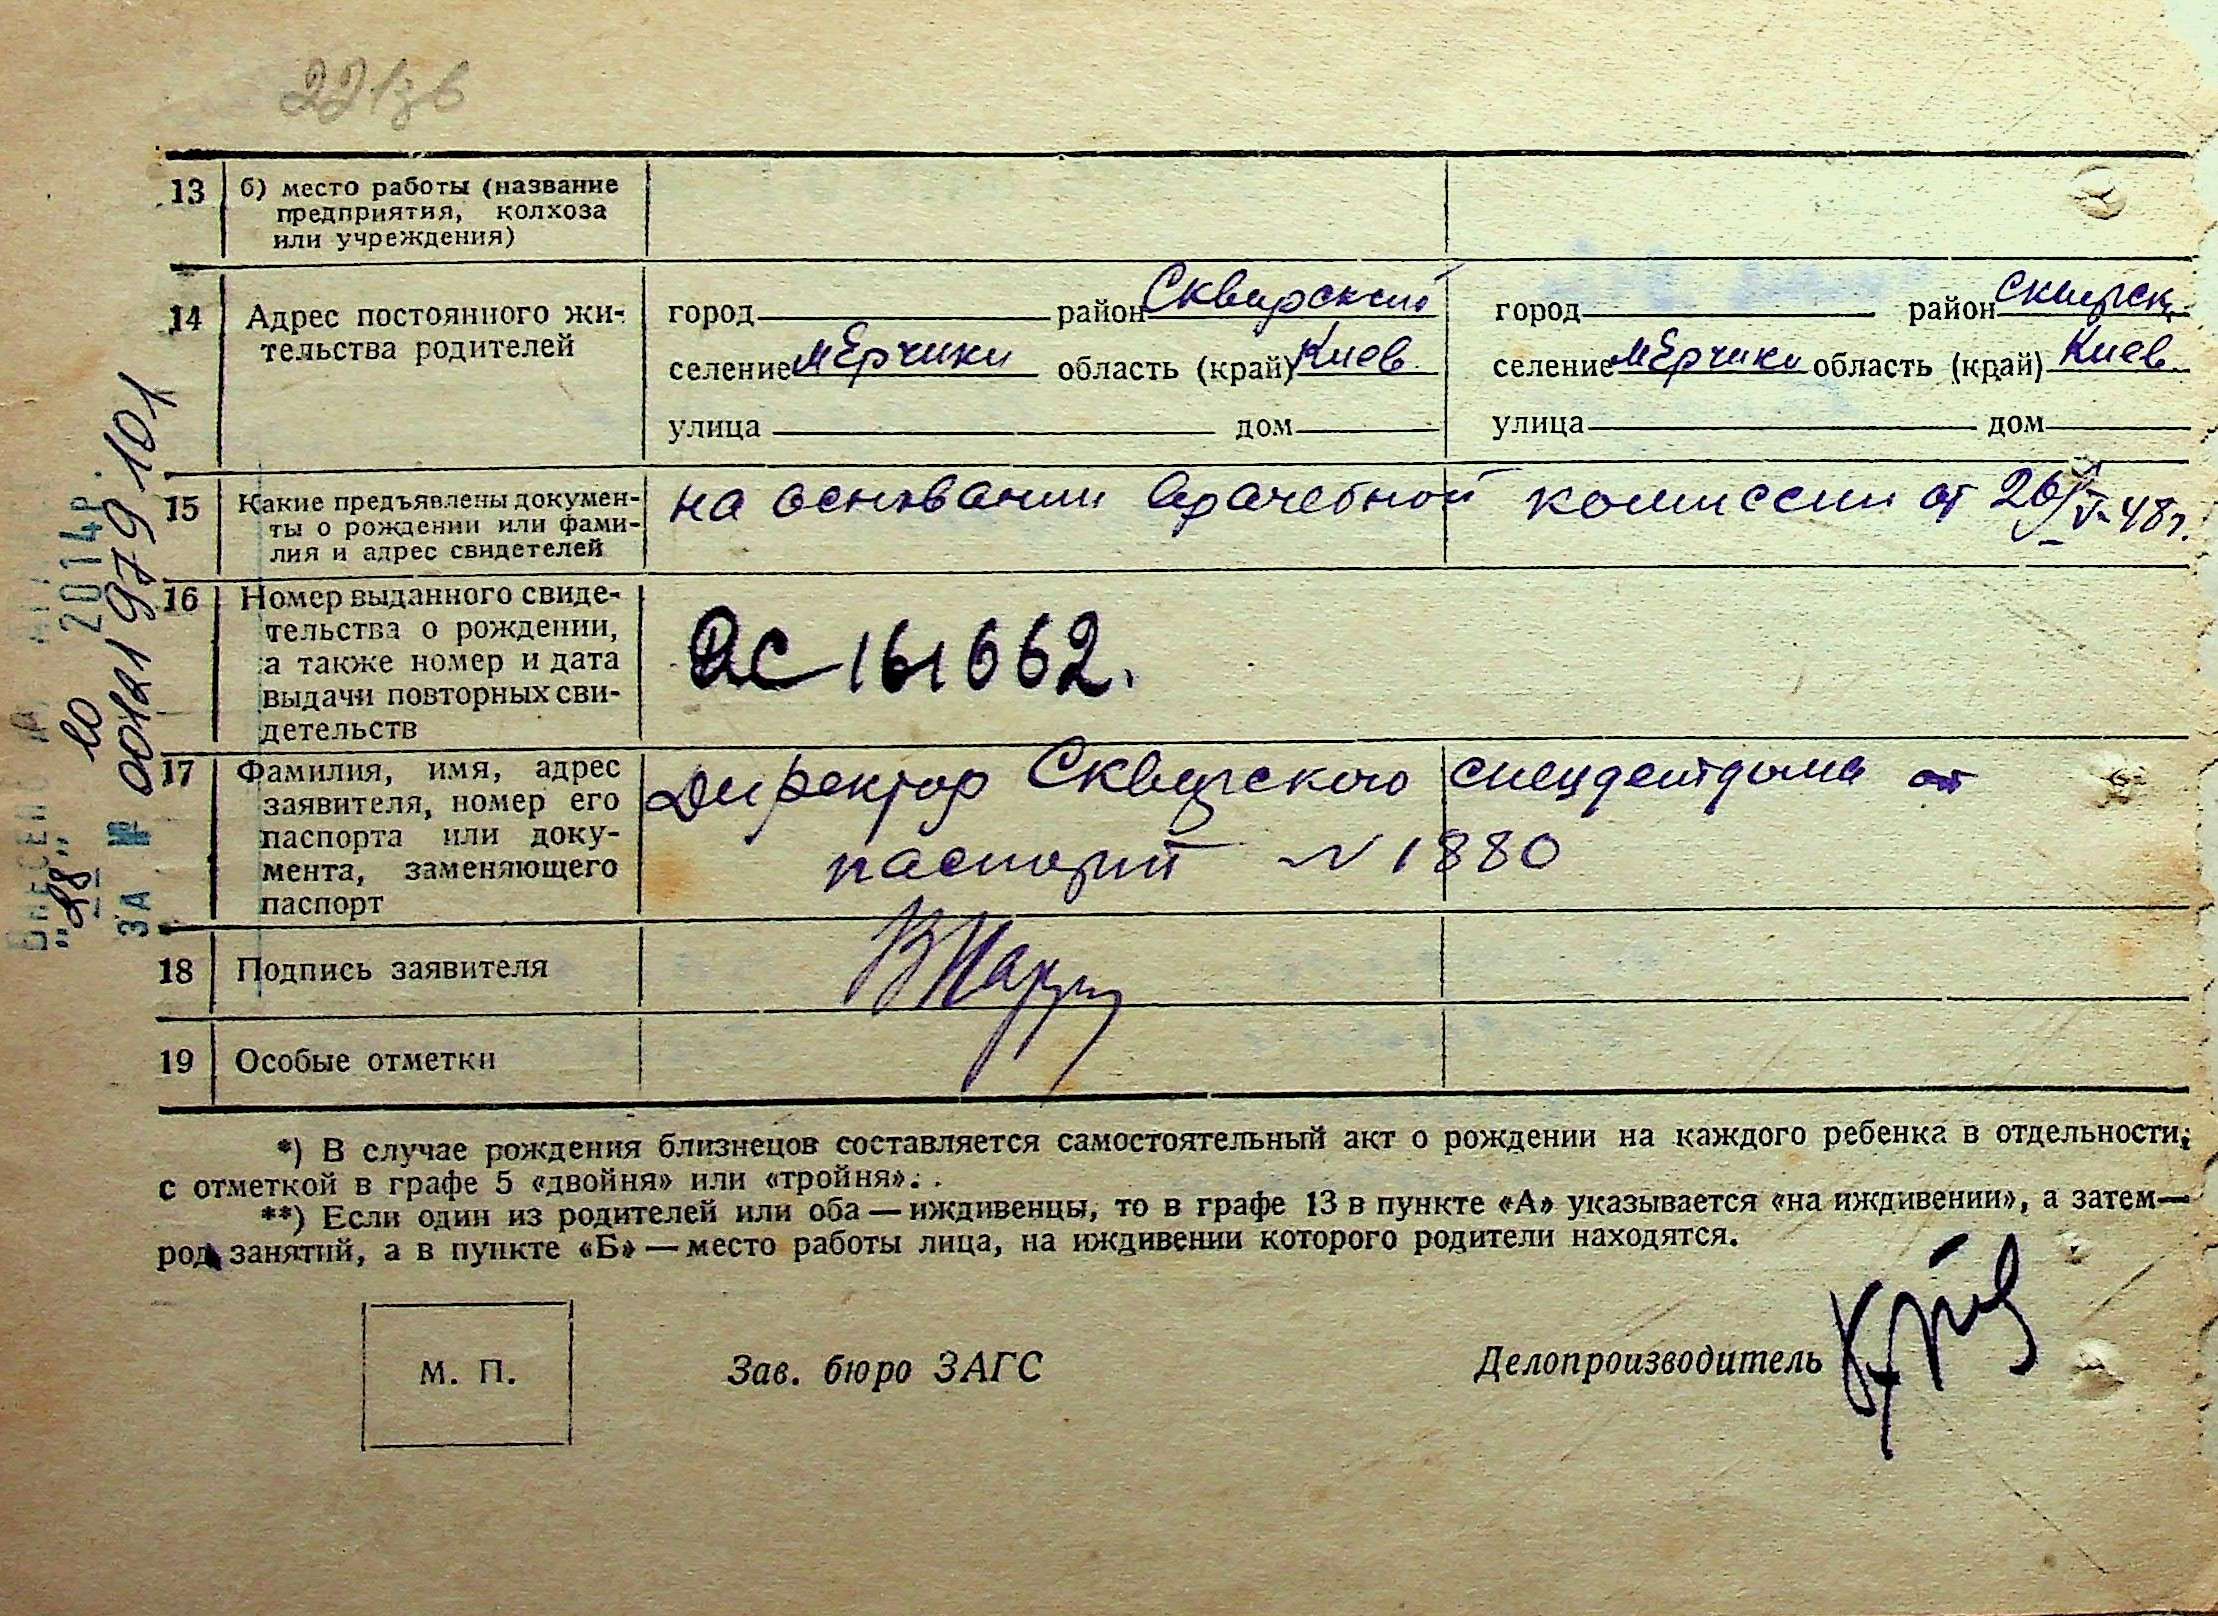 221зв
13 б) место работы (название
предприятия, колхоза
или учреждения)
14 Адрес постоянного жи-
тельства родителей
город район Сквирский
селение мЕрчики область (край) Киев
улица дом
город район сквирск
селение мЕрчики область (край) Киев
улица дом
15 Какие предъявлены докумен-
ты о рождении или фами-
лия и адрес свидетелей
на основании врачебной комиссии от 26/V-48г.
16 Номер выданного свиде-
тельства о рождении,
а также номер и дата
выдачи повторных сви-
детельств
161662.
17 Фамилия, имя, адрес
заявителя, номер его
паспорта или доку-
мента, заменяющего
паспорт
Директор Сквирского спецдетдома
паспорт N 1880
18 Подпись заявителя
19 Особые отметки
*) В случае рождения близнецов составляется самостоятельный акт о рождении на каждого ребенка в отдельности,
с отметкой в графе 5 «двойня» или «тройня».
**) Если один из родителей или оба — иждивенцы, то в графе 13 в пункте «А» указывается «на иждивении», а затем—
род занятий, а в пункте «Б» — место работы лица, на иждивении которого родители находятся.
М. П.
Зав. бюро ЗАГС
Делопроизводитель
"28" 10 2014р.
ЗА № 00121979101